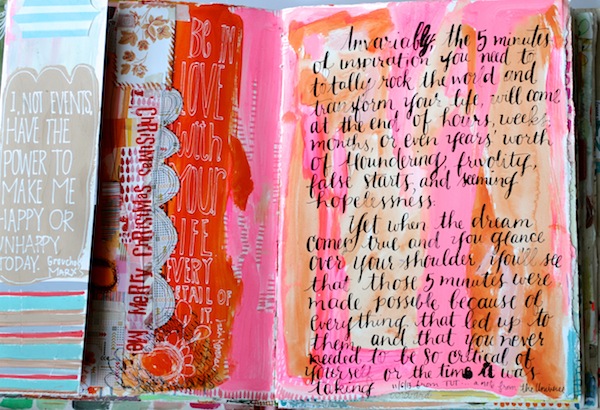 I, NOT EVENTS,
HAVE THE
POWER TO
MAKE ME
HAPPY OR
UNHAPPY
TODAY. Groucho
MARX
MERRY CHRISTMAS
BE IN
LOVE
with
YOUR
LIFE
EVERY
DETAIL OF
IT
Invariably, the 5 minutes
of inspiration you need to
totally rock the world and
transform your life, will come
at the end of hours, weeks
months, or even years' worth
of floundering, frivolity,
false starts, and seeming
hopelessness.
Yet when the dream
comes true and you glance
over your shoulder, you'll see
that those 5 minutes were
made possible because of
everything that led up to
them, and that you never
needed to be so critical of
yourself or the time it was
taking.
from TUT a note from the Universe